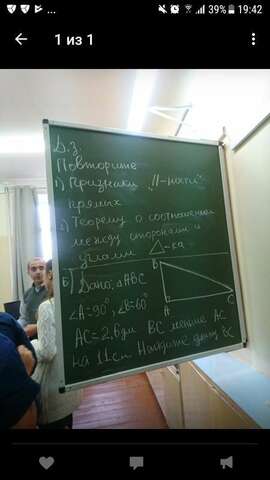 39% 19:42
1 из 1
Д.з.
Повторите
1) Признаки "||-ности"
прямых
2) Теорему о соотношении
между сторонами и
углами △-ка
Б) Дано: △ABC
∠A=90°, ∠B=60°
B
A
C
AC=2, BC меньше AC
на 11см Найдите длину BC